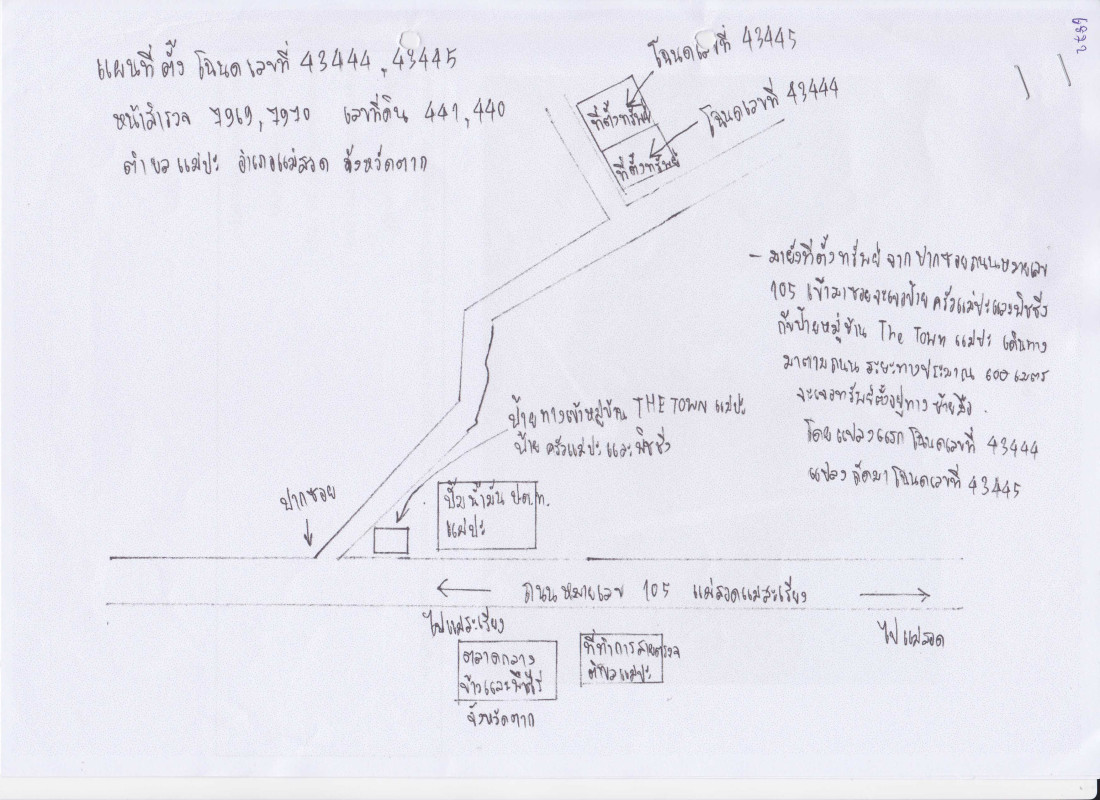 แผนที่ตั้ง โฉนดเลขที่ 43444, 43445
หน้าสำรวจ 7969, 7970 เลขที่ดิน 441, 440
ตำบลแม่ปะ อำเภอแม่สอด จังหวัดตาก
โฉนดเลขที่ 43445
โฉนดเลขที่ 43444
ที่ตั้งทรัพย์
ที่ตั้งทรัพย์
- มายังที่ตั้งทรัพย์ จากปากซอยถนนหมายเลข
105 เข้ามาซอยจะเจอป้าย ครัวแม่ปะและฟิชชิ่ง
กับป้ายหมู่บ้าน The Town แม่ปะ เดินทาง
มาตามถนน ระยะทางประมาณ 600 เมตร
จะเจอทรัพย์ตั้งอยู่ทาง ซ้ายมือ.
โดยแปลงแรก โฉนดเลขที่ 43444
แปลงถัดมา โฉนดเลขที่ 43445
ป้ายทางเข้าหมู่บ้าน THE TOWN แม่ปะ
ป้าย ครัวแม่ปะและฟิชชิ่ง
ปากซอย
ปั๊มน้ำมัน ปตท.
แม่ปะ
ถนนหมายเลข 105 แม่สอดแม่สะเรียง
ไปแม่สะเรียง
ไปแม่สอด
ตลาดกลาง
ข้าวและพืชไร่
จังหวัดตาก
ที่ทำการสายตรวจ
ตำบลแม่ปะ